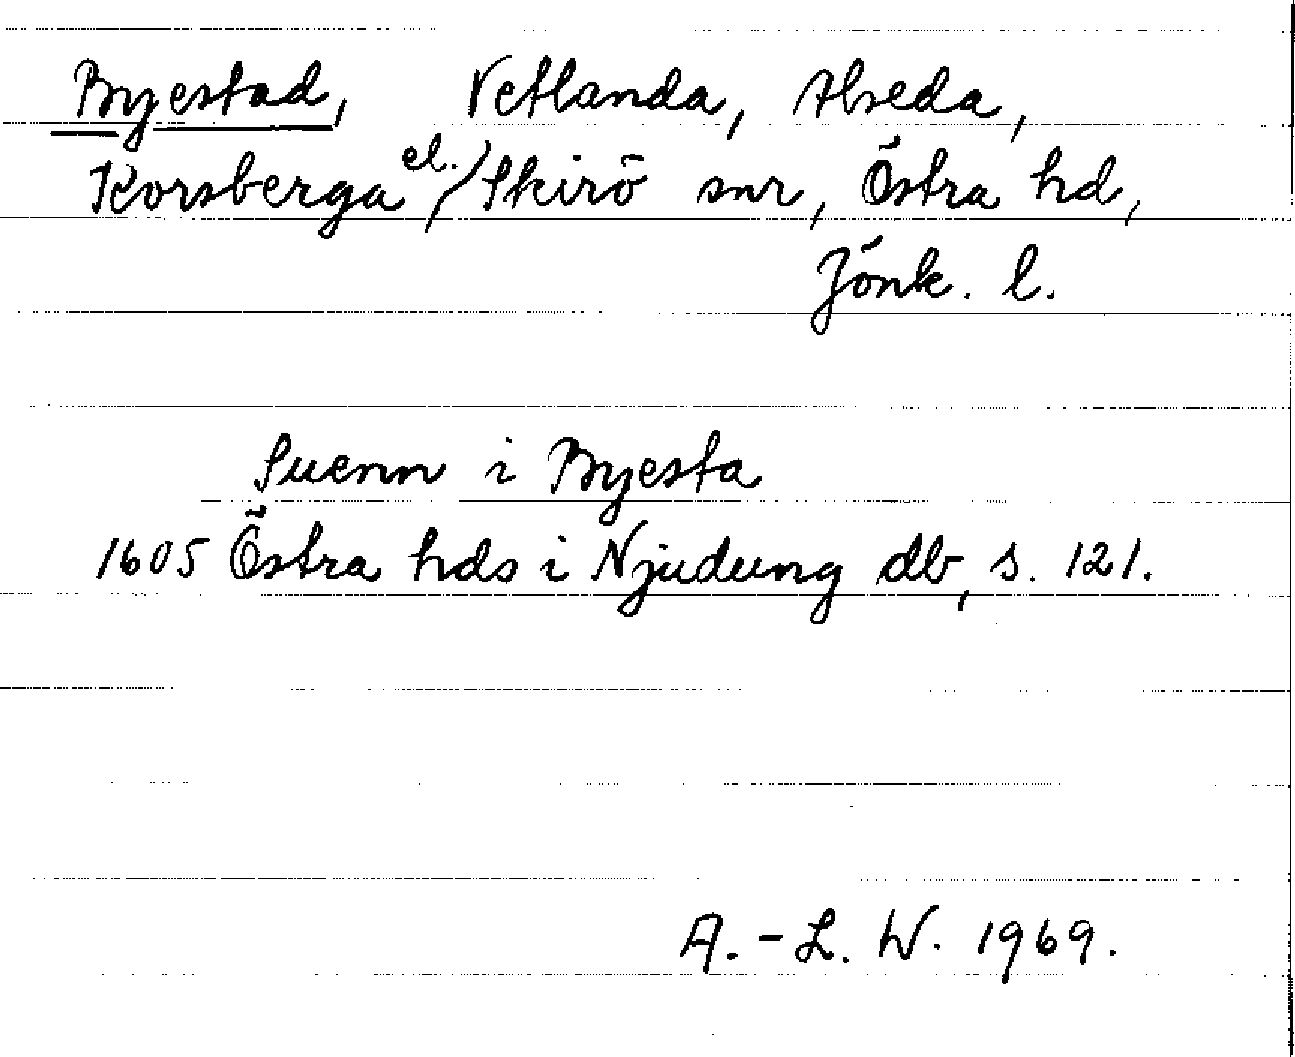 Byestad, Vetlanda, Alseda,
Korsberga el. Skirö snr, Östra hd,
Jönk. l.
Suenn i Byesta
1605 Östra hds i Njudung db, s. 121.
A.-L. W. 1969.